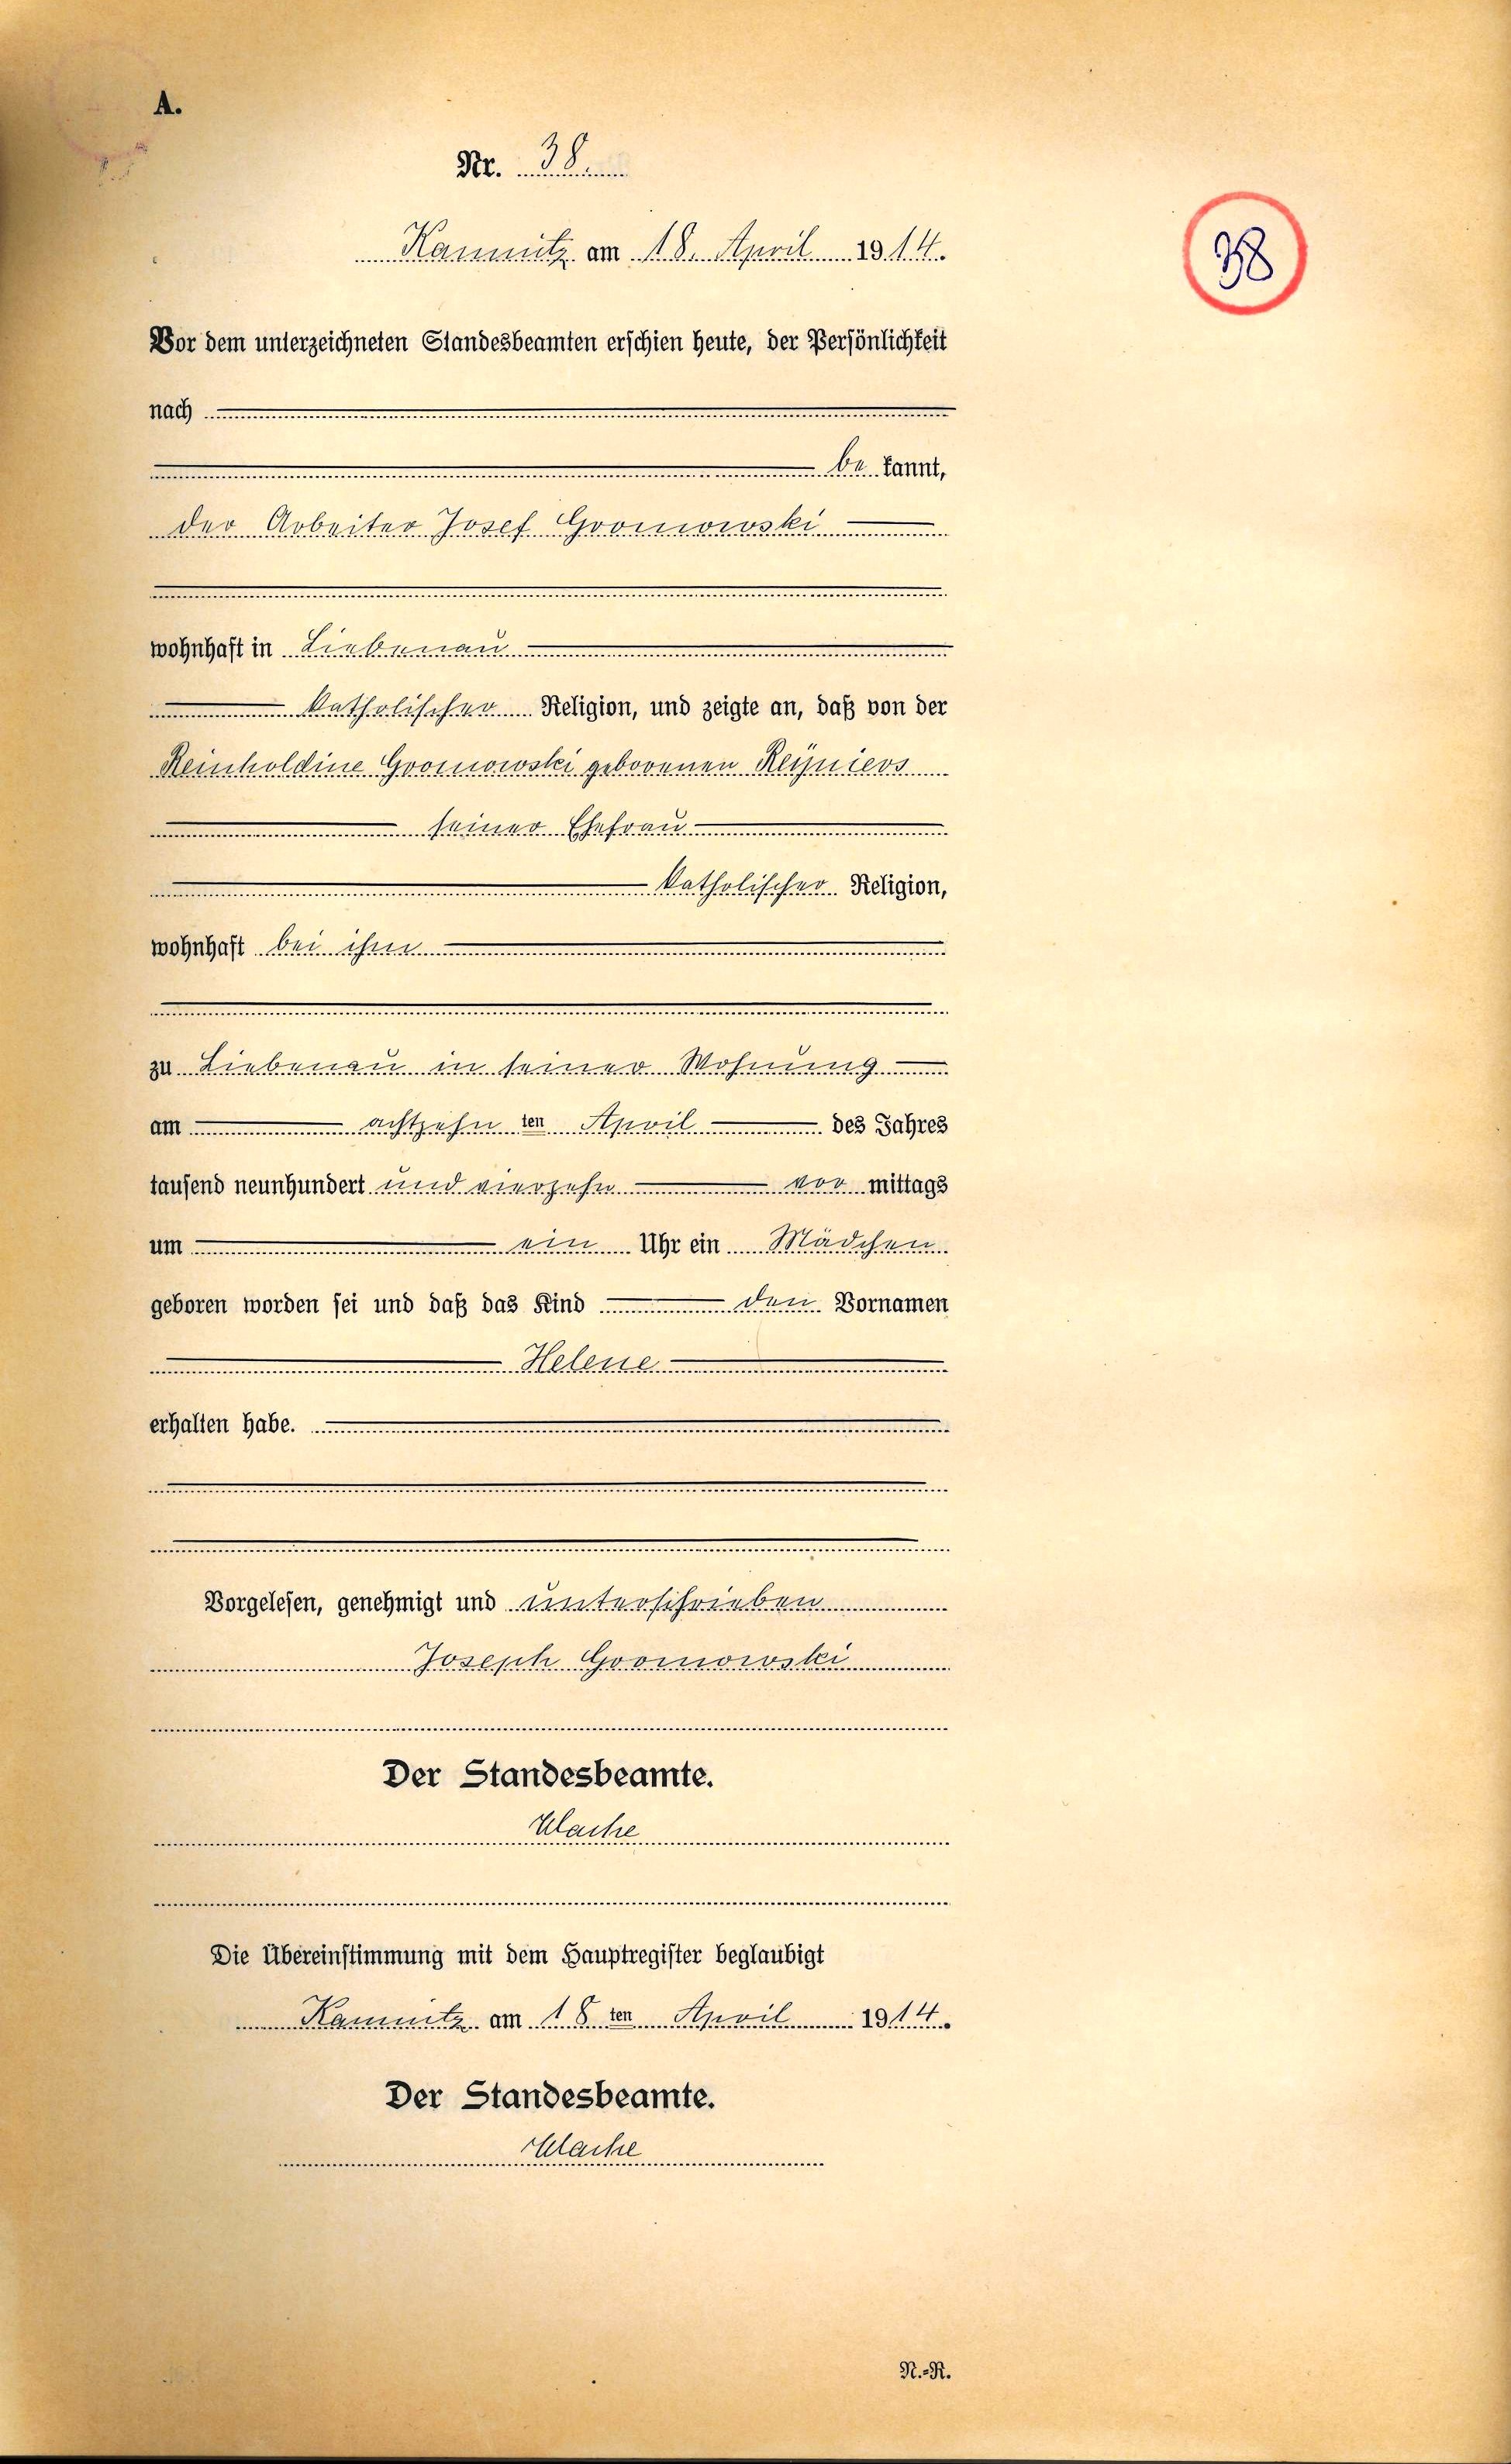 A.
Nr. 38
38
Kamnitz am 18. April 1914.
Vor dem unterzeichneten Standesbeamten erschien heute, der Persönlichkeit
nach
be kannt,
der Arbeiter Josef Gromowski
wohnhaft in Liebenau
katholischer Religion, und zeigte an, daß von der
Reinholdine Gromowski geborenen Reijniers
seiner Ehefrau
katholischer Religion,
wohnhaft bei ihm
zu Liebenau in seiner Wohnung
am achtzehn ten April des Jahres
tausend neunhundert und vierzehn vor mittags
um ein Uhr ein Mädchen
geboren worden sei und daß das Kind den Vornamen
Helene
erhalten habe.
Vorgelesen, genehmigt und unterschrieben
Joseph Gromowski
Der Standesbeamte.
Die Übereinstimmung mit dem Hauptregister beglaubigt
Kamnitz am 18 ten April 1914.
Der Standesbeamte.
N.=R.